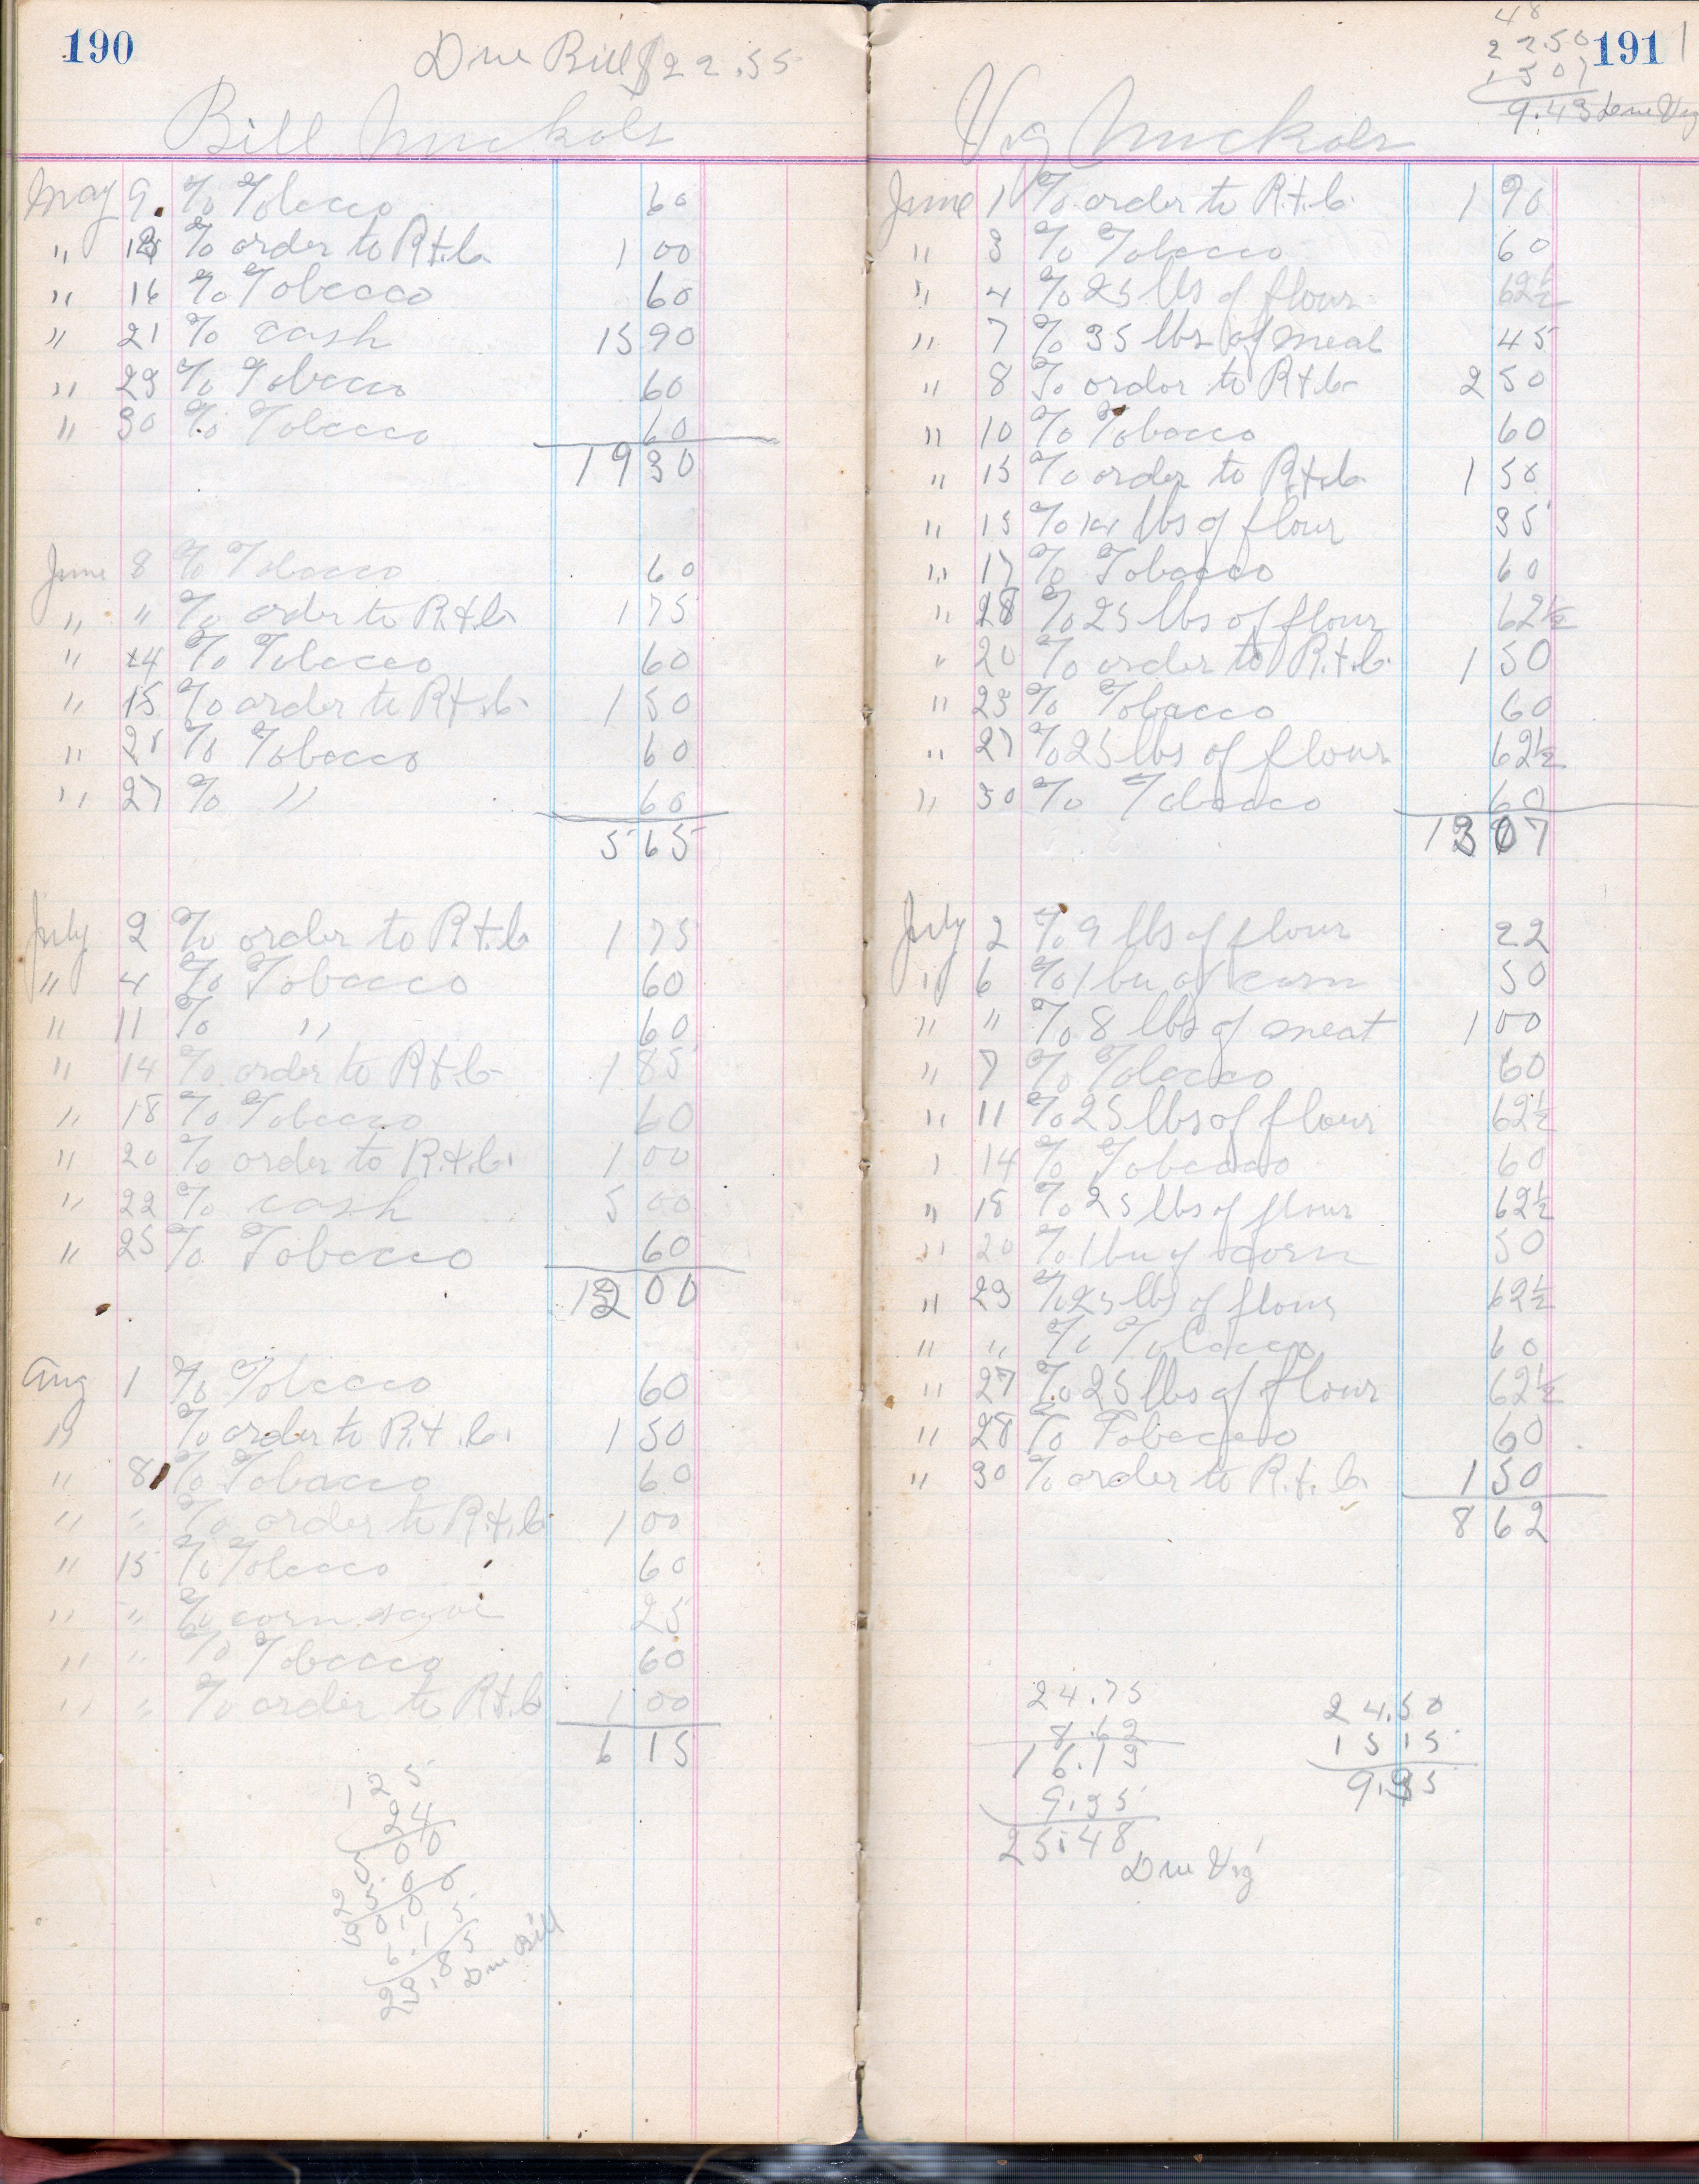 190
Due Bill $22.55
Bill Nuckols
May 9. % Tobacco 60
" 13 % order to R.+.b. 1 00
" 16 % Tobacco 60
" 21 % cash 15 90
" 23 % Tobacco 60
" 30 % Tobacco 60
19 30
June 8 % Tobacco 60
" " % order to R.+.b. 1 75
" 14 % Tobacco 60
" 15 % order to R.+.b. 1 50
" 21 % Tobacco 60
" 27 % " 60
5 65
July 2 % order to R.+.b 1 75
" 4 % Tobacco 60
" 11 % " 60
" 14 % order to R.+.b. 1 85
" 18 % Tobacco 60
" 20 % order to R.+.b. 1 00
" 22 % cash 5 00
" 25 % Tobacco 60
12 00
Aug 1 % Tobacco 60
" % order to R.+.b. 1 50
" 8 % Tobacco 60
" " % order to R.+.b. 1 00
" 15 % Tobacco 60
" " % corn 25
" " % Tobacco 60
" " % order to R.+.b 1 00
6 15
125
24
5 00
25.00
30.00
6.15
23.85
Due Bill
191
22.50
1307
9.43 Due Virg
Virg Nuckols
June 1 % order to R.+.b. 1 90
" 3 % Tobacco 60
" 4 % 25 lbs of flour 62½
" 7 % 35 lbs of meal 45
" 8 % order to R.+.b. 2 50
" 10 % Tobacco 60
" 15 % order to R.+.b. 1 50
" 15 % 14 lbs of flour 35
" 17 % Tobacco 60
" 28 % 25 lbs of flour 62½
" 20 % order to R.+.b. 1 50
" 23 % Tobacco 60
" 27 % 25 lbs of flour 62½
" 30 % Tobacco 60
13 07
July 2 % 9 lbs of flour 22
" 6 % 1 bu of corn 50
" " % 8 lbs of meat 1 00
" 7 % Tobacco 60
" 11 % 25 lbs of flour 62½
" 14 % Tobacco 60
" 18 % 25 lbs of flour 62½
" 20 % 1 bu of corn 50
" 23 % 25 lbs of flour 62½
" " % Tobacco 60
" 27 % 25 lbs of flour 62½
" 28 % Tobacco 60
" 30 % order to R.+.b. 1 50
8 62
24.75
8.62
16.13
9.35
25.48
Due Virg
24.50
15 15
9.35